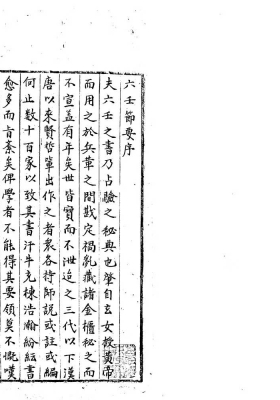 六壬節要序
夫六壬之書乃占驗之秘典也肇自玄女授黃帝
而用之於兵葦之間戡定禍亂藏諸金櫃秘之而
不宣盖有年矣世皆寶而不泄迨之三代以下漢
唐以來賢哲輩出作之者衆各持師說或註或編
何止數十百家以致其書汗牛充棟浩瀚紛紜書
愈多而旨紊矣俾學者不能得其要領莫不慨嘆